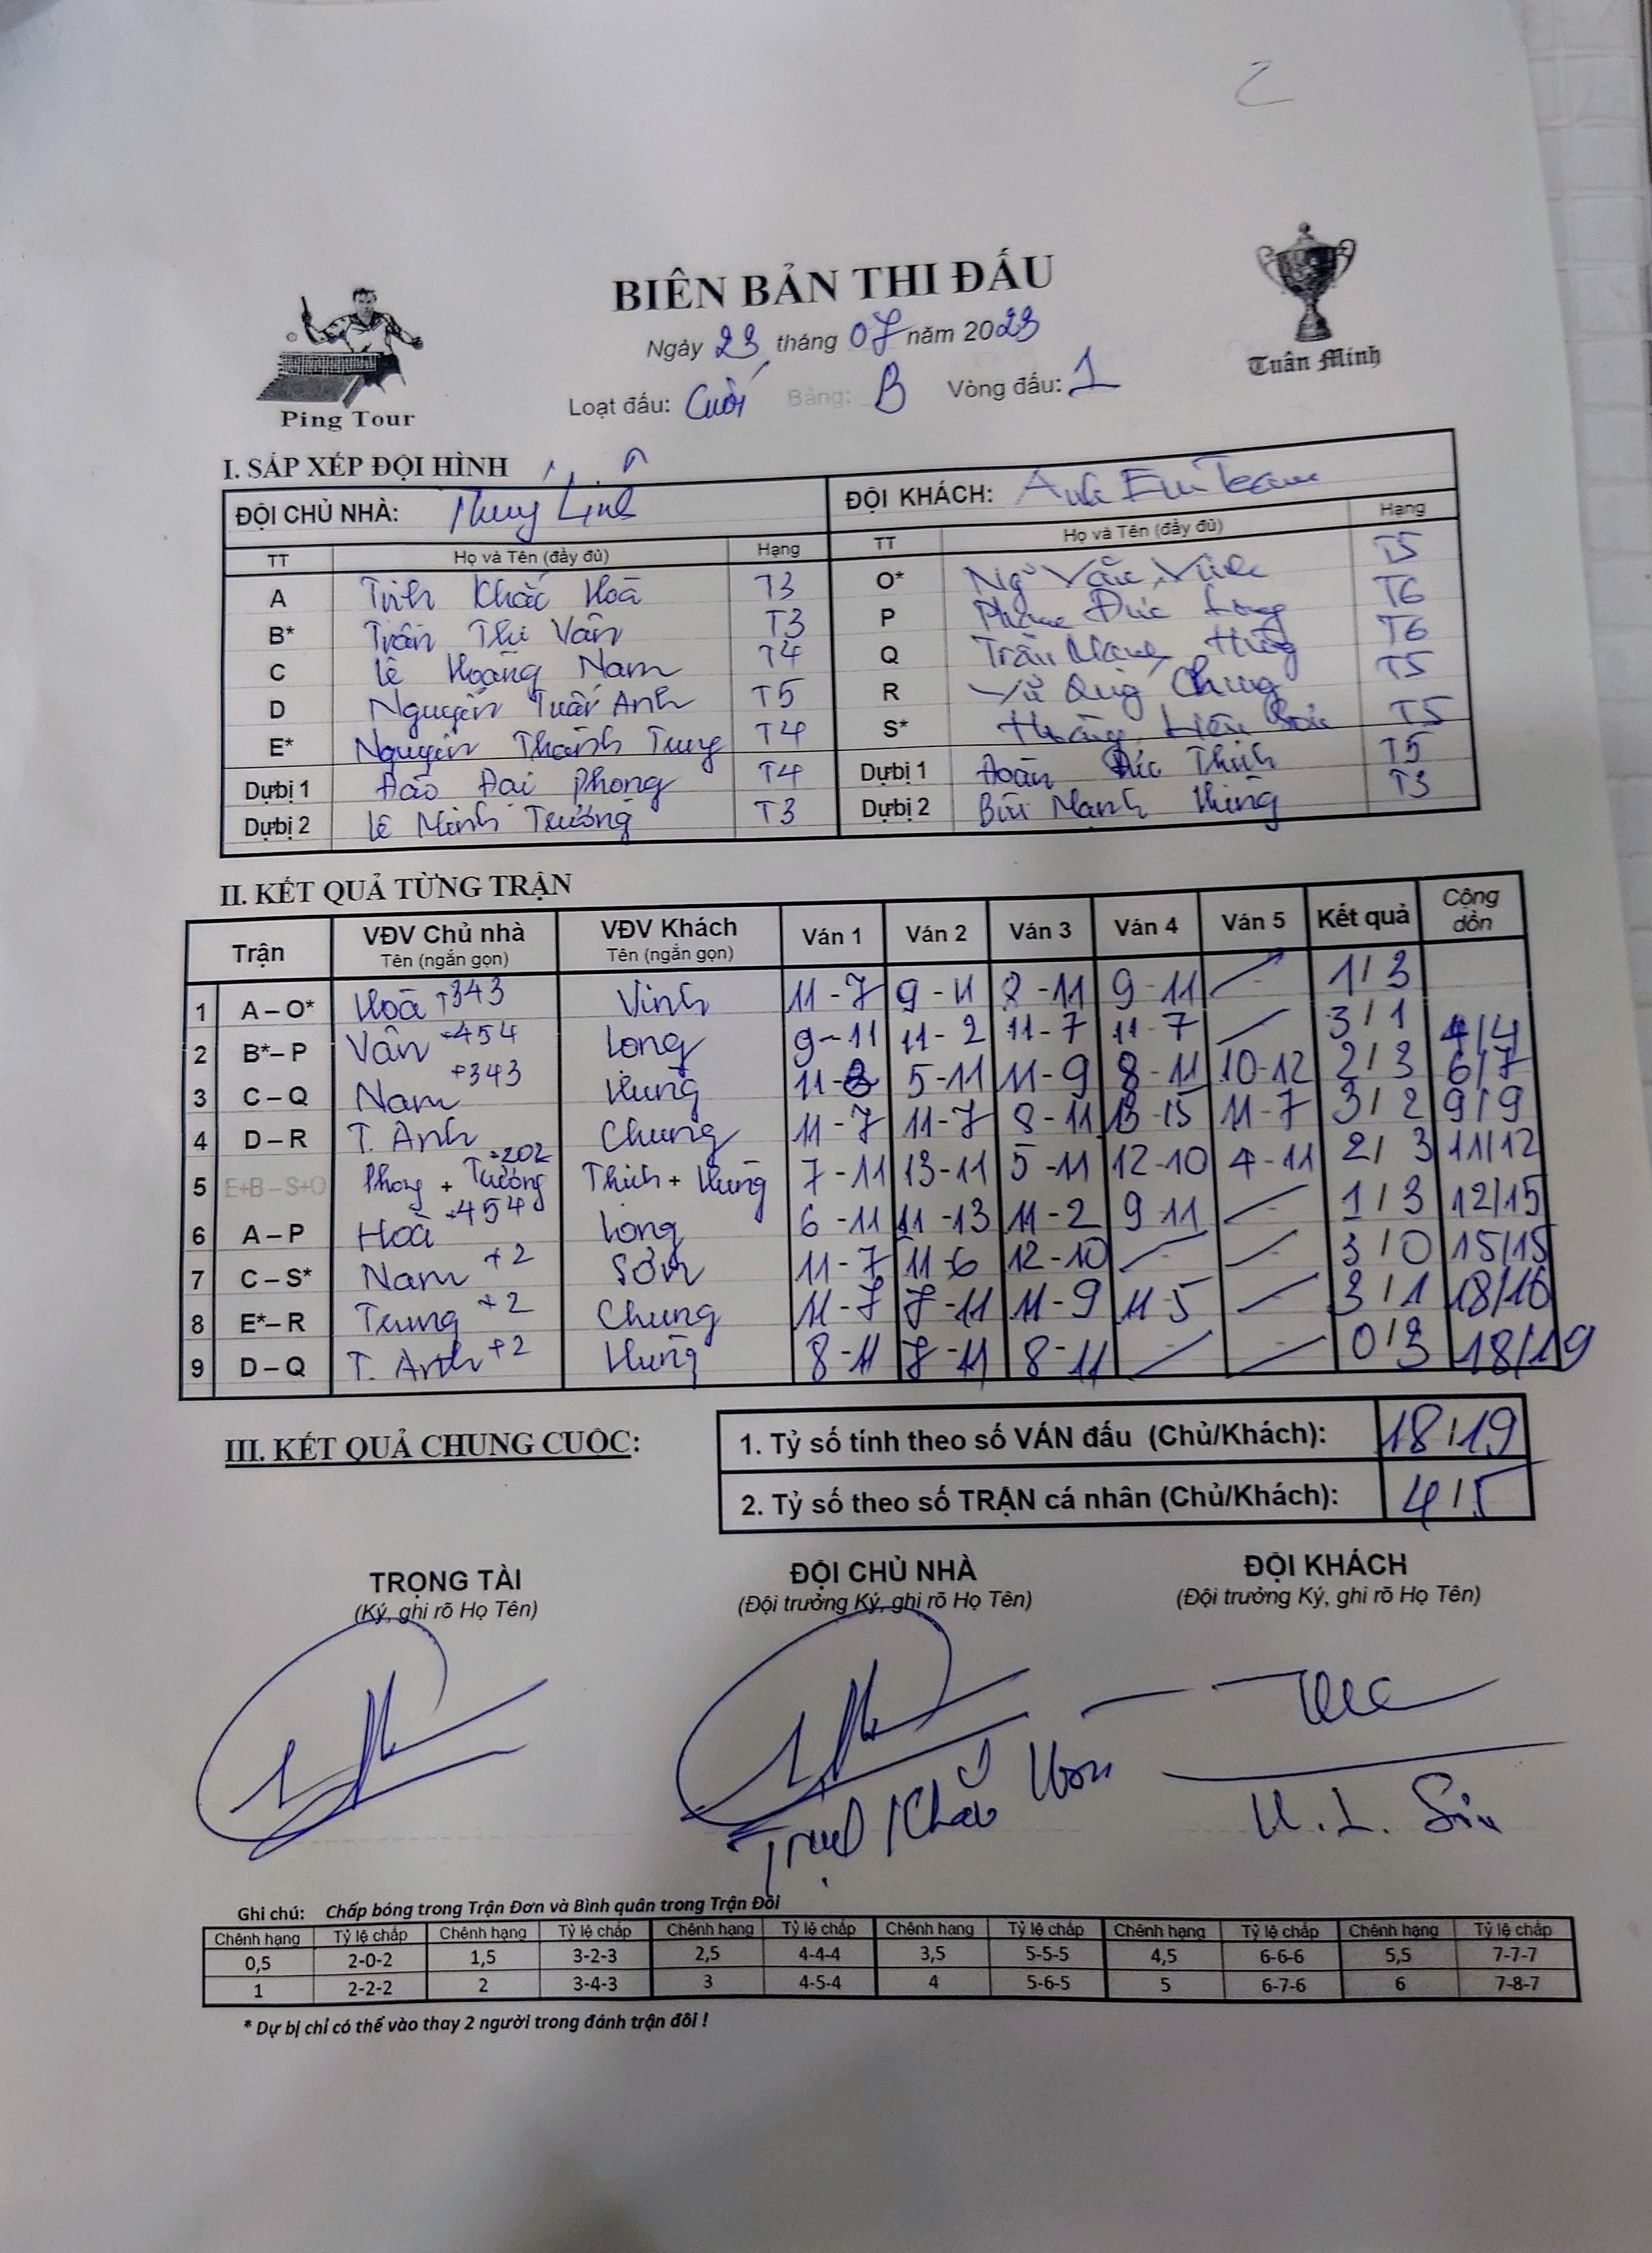 BIÊN BẢN THI ĐẤU
Ngày 23 tháng 07 năm 2023
Ping Tour
Tuân Minh
Loạt đấu: Cuối Bảng: B Vòng đấu: 1
I. SẮP XẾP ĐỘI HÌNH
ĐỘI CHỦ NHÀ: Thuỳ Linh ĐỘI KHÁCH: Anh Em Team
TT Họ và Tên (đầy đủ) Hạng TT Họ và Tên (đầy đủ) Hạng
A Trịnh Khắc Hoà T3 O* Ngô Văn Vinh T5
B* Trần Thị Vân T3 P Phạm Đức Long T6
C Lê Hoàng Nam T4 Q Trần Mạnh Hùng T6
D Nguyễn Tuấn Anh T5 R Vũ Quý Chung T5
E* Nguyễn Thành Trung T4 S* Hoàng Liên Sơn T5
Dự bị 1 Đào Đại Phong T4 Dự bị 1 Đoàn Đức Thịnh T5
Dự bị 2 Lê Minh Trường T3 Dự bị 2 Bùi Mạnh Hùng T3
II. KẾT QUẢ TỪNG TRẬN
Trận VĐV Chủ nhà Tên (ngắn gọn) VĐV Khách Tên (ngắn gọn) Ván 1 Ván 2 Ván 3 Ván 4 Ván 5 Kết quả Cộng dồn
1 A – O* Hoà +343 Vinh 11 - 7 9 - 11 - 11 9 - 11 1 / 3
2 B*– P Vân +454 Long 9 - 11 11 - 2 11 - 7 11 - 7 3 / 1 4/4
3 C – Q Nam +343 Hùng 11 - 8 5 - 11 11 - 9 8 - 11 10 - 12 2 / 3 6/7
4 D – R T. Anh Chung 11 - 7 11 - 7 8 - 11 13 - 15 11 - 7 3 / 2 9/9
5 E+B – S+O Phong + Trường +202 Thịnh + Hùng 7 - 11 13 - 11 5 - 11 12 - 10 4 - 11 2 / 3 11/12
6 A – P Hoà +454 Long 6 - 11 11 - 13 11 - 2 9 - 11 1 / 3 12/15
7 C – S* Nam +2 Sơn 11 - 7 11 - 6 12 - 10 3 / 0 15/15
8 E*– R Trung +2 Chung 11 - 7 7 - 11 11 - 9 11 - 5 3 / 1 18/16
9 D – Q T. Anh +2 Hùng 8 - 11 7 - 11 8 - 11 0 / 3 18/19
III. KẾT QUẢ CHUNG CUỘC:
1. Tỷ số tính theo số VÁN đấu (Chủ/Khách): 18 / 19
2. Tỷ số theo số TRẬN cá nhân (Chủ/Khách): 4 / 5
TRỌNG TÀI ĐỘI CHỦ NHÀ ĐỘI KHÁCH
(Ký, ghi rõ Họ Tên) (Đội trưởng Ký, ghi rõ Họ Tên) (Đội trưởng Ký, ghi rõ Họ Tên)
Trịnh Khắc Hoà H. L. Sơn
Ghi chú: Chấp bóng trong Trận Đơn và Bình quân trong Trận Đôi
Chênh hạng Tỷ lệ chấp Chênh hạng Tỷ lệ chấp Chênh hạng Tỷ lệ chấp Chênh hạng Tỷ lệ chấp Chênh hạng Tỷ lệ chấp Chênh hạng Tỷ lệ chấp
0,5 2-0-2 1,5 3-2-3 2,5 4-4-4 3,5 5-5-5 4,5 6-6-6 5,5 7-7-7
1 2-2-2 2 3-4-3 3 4-5-4 4 5-6-5 5 6-7-6 6 7-8-7
* Dự bị chỉ có thể vào thay 2 người trong đánh trận đôi !